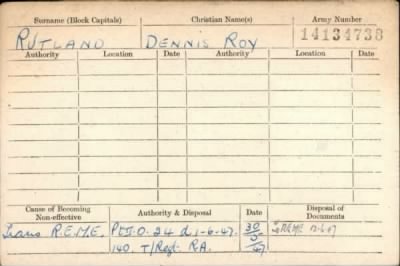 Surname (Block Capitals) Christian Name(s) Army Number
RUTLAND DENNIS ROY 14134738
Authority Location Date Authority Location Date
Cause of Becoming Non-effective Authority & Disposal Date Disposal of Documents
Trans R.E.M.E. Pt II.O. 24 d. 1-6-47. 30/5/47 REME
140. T/Regt R.A.